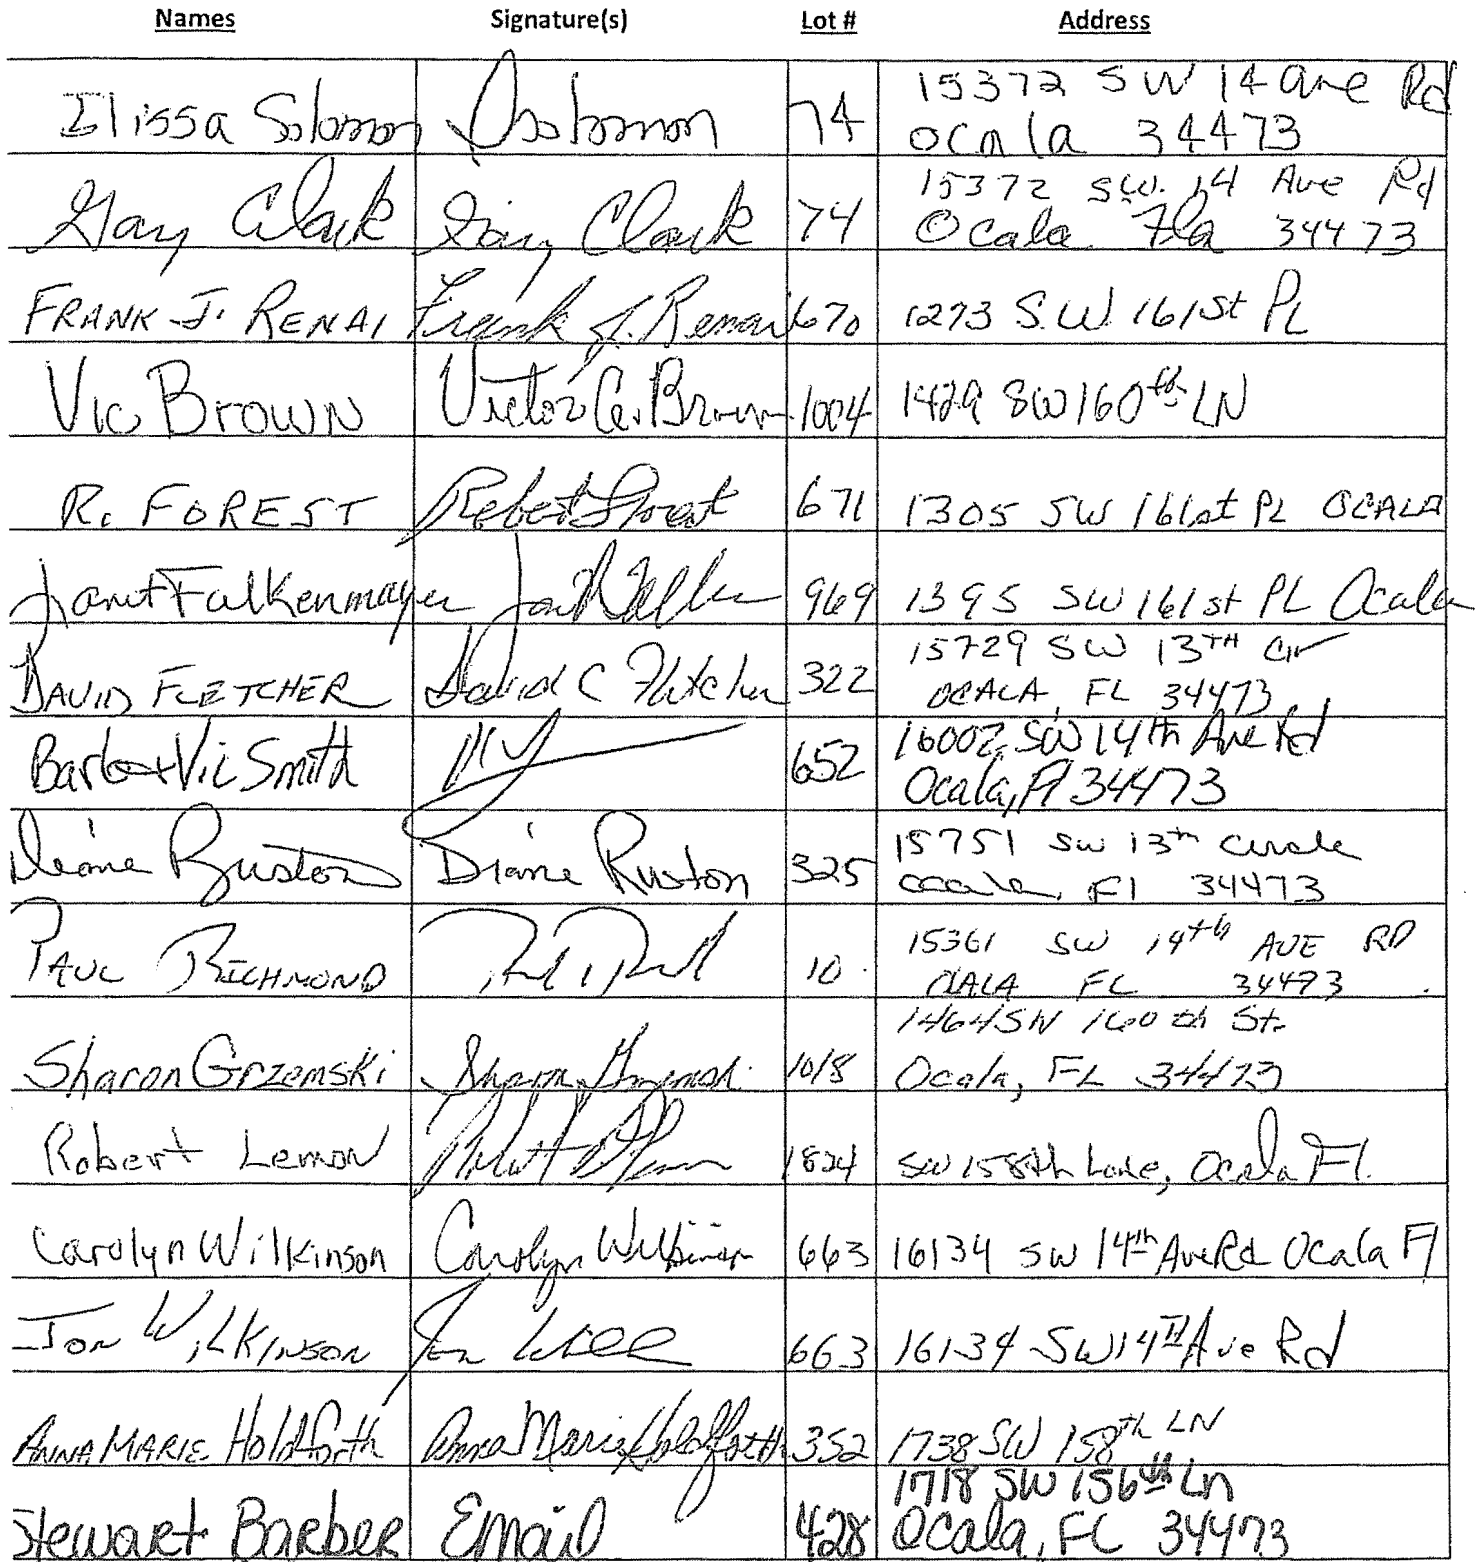 Names Signature(s) Lot # Address
Elissa Solomon 74 15372 SW 14 Ave Rd
Ocala 34473
Gary Clark Gary Clark 74 15372 SW. 14 Ave Rd
Ocala Fla 34473
FRANK J. RENAI Frank J. Renai 670 1273 S.W. 161st PL
Vic Brown Victor G. Brown 1004 1429 SW 160th LN
R. FOREST Robert Forest 671 1305 SW 161st PL OCALA
Janet Falkenmayer 969 1395 SW 161st PL Ocala
DAVID FLETCHER David C Fletcher 322 15729 SW 13TH Cir
OCALA, FL 34473
Barb + Vic Smith 652 16002 SW 14th Ave Rd
Ocala, Fl 34473
Diane Ruston Diane Ruston 325 15751 SW 13th Circle
Ocala, Fl 34473
PAUL RICHMOND 10 15361 SW 14th AVE RD
OCALA FL 34473
Sharon Grzemski Sharon Grzemski 1018 1464 SW 160th St.
Ocala, FL 34473
Robert Lemon 1824 SW 158th Lane, Ocala Fl.
Carolyn Wilkinson Carolyn Wilkinson 663 16134 SW 14th Ave Rd Ocala Fl
Jon Wilkinson 663 16134 SW 14TH Ave Rd
ANNA MARIE Holdforth Anna Marie Holdforth 352 1738 SW 158th LN
Stewart Barber Email 428 1718 SW 156th Ln
Ocala, FL 34473